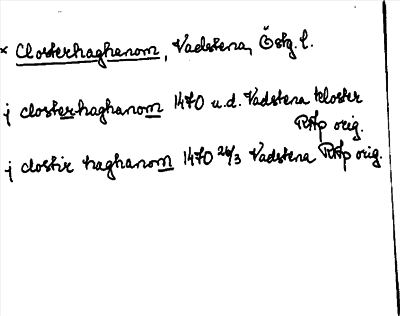 × Closterhaghanom, Vadstena, Östg. l.
j closter haghanom 1470 u.d. Vadstena kloster
RAp orig.
j clostir haghanom 1470 26/3 Vadstena RAp orig.